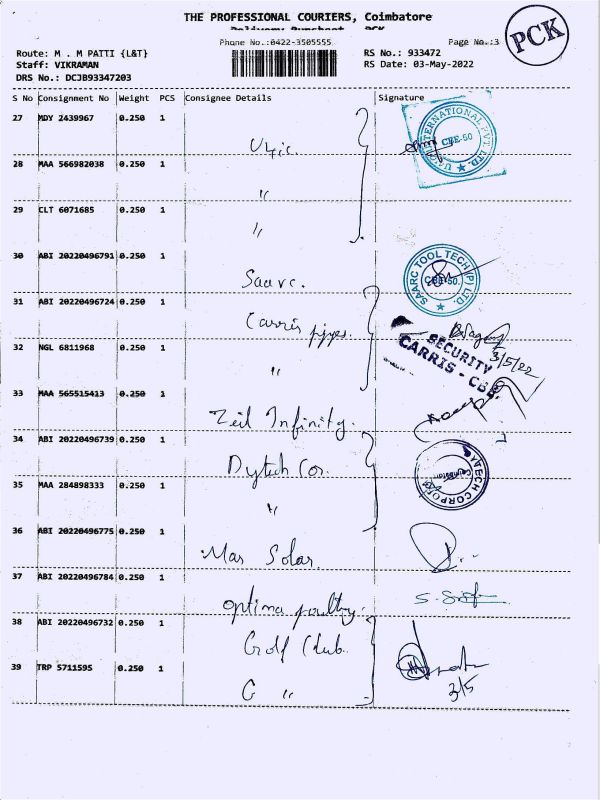 THE PROFESSIONAL COURIERS, Coimbatore
Delivery Runsheet PCK
PCK
Phone No.:0422-3505555
Page No.:3
Route: M . M PATTI {L&T}
RS No.: 933472
Staff: VIKRAMAN
RS Date: 03-May-2022
DRS No.: DCJB93347203
S No Consignment No Weight PCS Consignee Details Signature
27 MDY 2439967 0.250 1
INTERNATIONAL PVT. LTD.
CBE-50
28 MAA 566982038 0.250 1
"
29 CLT 6071685 0.250 1
"
30 ABI 20220496791 0.250 1
Saarc.
SAARC TOOL TECH (P) LTD.
CBE-50.
31 ABI 20220496724 0.250 1
Carris pipes.
3/5/22
SECURITY
CARRIS - CBE.
32 NGL 6811968 0.250 1
"
33 MAA 565515413 0.250 1
Zeil Infinity.
34 ABI 20220496739 0.250 1
Dytech Cor.
DYTECH CORPORA
Coimbatore
35 MAA 284898333 0.250 1
"
36 ABI 20220496775 0.250 1
Mas Solar.
37 ABI 20220496784 0.250 1
Optima poultry.
38 ABI 20220496732 0.250 1
Golf Club.
39 TRP 5711595 0.250 1
G "
3/5